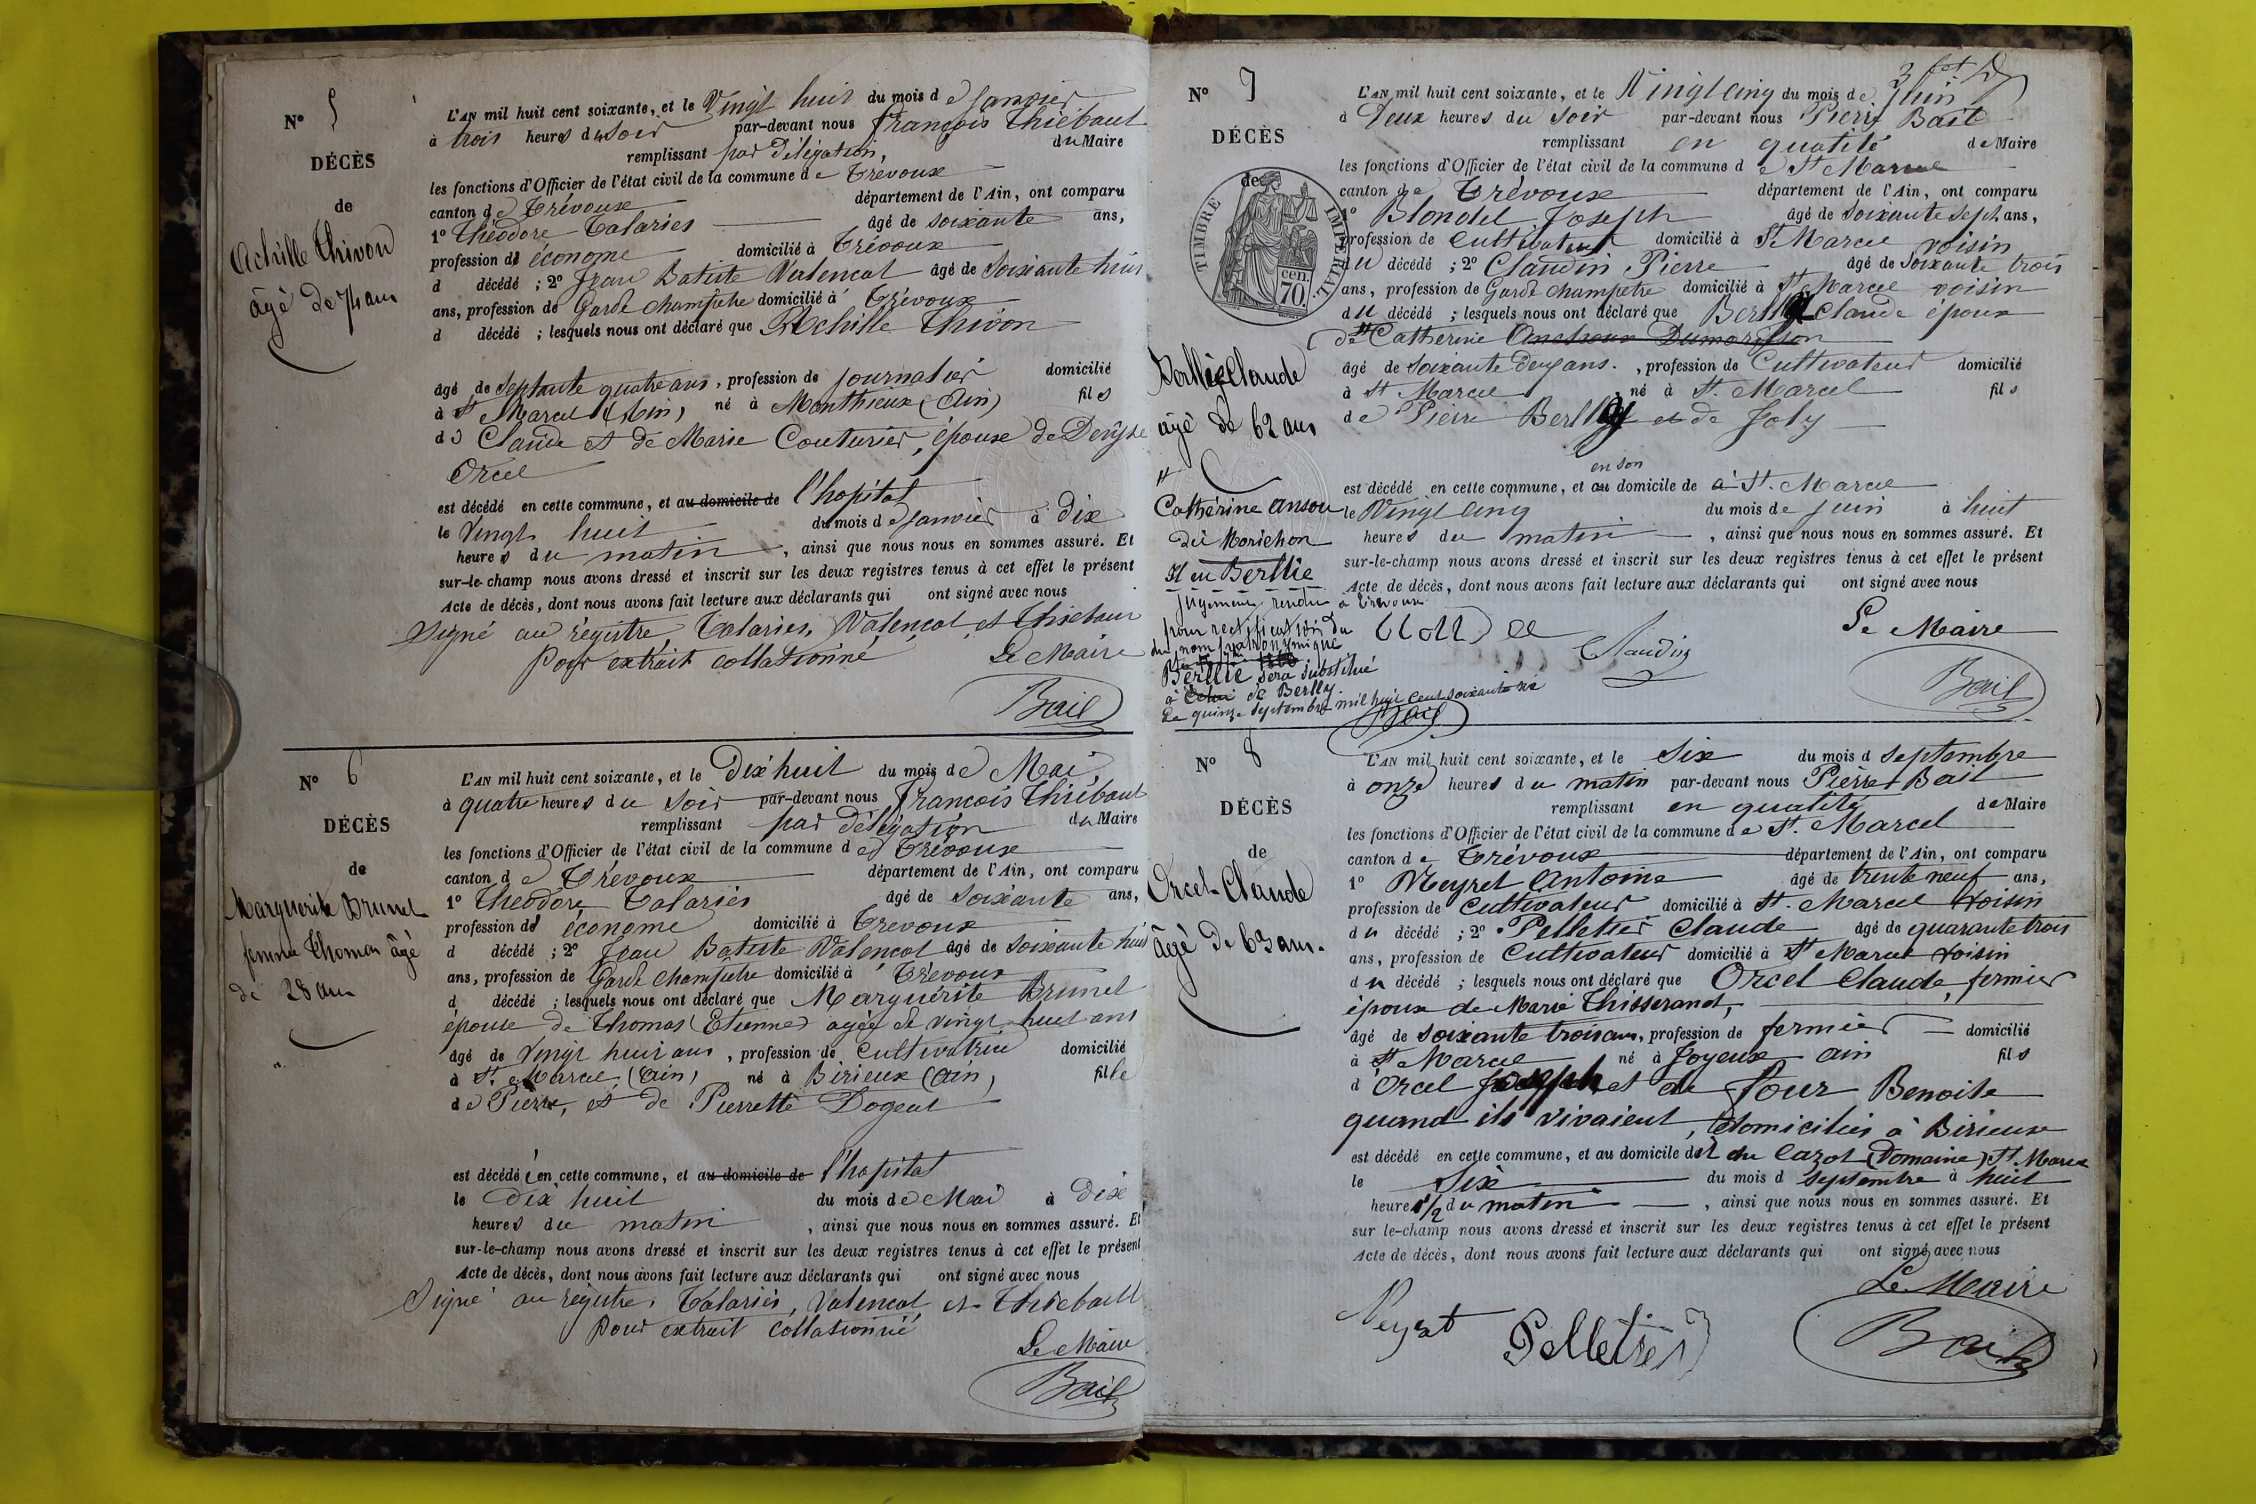 N° 5
DÉCÈS
de
Achille Thivon
âgé de 74 ans
L'AN mil huit cent soixante, et le Vingt huit du mois de Janvier
à trois heures du soir par-devant nous François Thiébaut
remplissant par Délégation, du Maire
les fonctions d'Officier de l'état civil de la commune de Trévoux
canton de Trévoux département de l'Ain, ont comparu
1° Théodore Talariès âgé de soixante ans,
profession de économe domicilié à Trévoux
d décédé ; 2° Jean Batiste Valençot âgé de soixante huit
ans, profession de Garde champêtre domicilié à Trévoux
d décédé ; lesquels nous ont déclaré que Achille Thivon
âgé de septante quatre ans, profession de journalier domicilié
à St Marcel (Ain) né à Monthieux (Ain) fils
de Claude et de Marie Couturier, épouse de
Orcel
est décédé en cette commune, et au domicile de l'hopital
le Vingt huit du mois de Janvier à Dix
heures du matin, ainsi que nous nous en sommes assuré. Et
sur-le-champ nous avons dressé et inscrit sur les deux registres tenus à cet effet le présent
Acte de décès, dont nous avons fait lecture aux déclarants qui ont signé avec nous
Signé au régistre, Talariès, Valençot, et Thiebaut
Pour extrait collationné
Le Maire
Bail
N° 6
DÉCÈS
de
Marguerite Brunet
femme Thomas âgé
de 28 ans
L'AN mil huit cent soixante, et le Dix huit du mois de Mai
à quatre heures du soir par-devant nous François Thiébaut
remplissant par Délégation du Maire
les fonctions d'Officier de l'état civil de la commune de Trévoux
canton de Trévoux département de l'Ain, ont comparu
1° Théodore Talariès âgé de soixante ans,
profession de économe domicilié à Trevoux
d décédé ; 2° Jean Batiste Valençot âgé de soixante huit
ans, profession de Garde champêtre domicilié à Trévoux
d décédé ; lesquels nous ont déclaré que Marguérite Brunet
épouse de Thomas Etienne agée de vingt huit ans
âgé de Vingt huit ans, profession de cultivatrice domicilié
à St. Marcel (Ain) né à Birieux (Ain) fille
de Pierre, et de Pierrette Dogeut
est décédé en cette commune, et au domicile de l'hopital
le Dix huit du mois de Mai à Dix
heures du matin, ainsi que nous nous en sommes assuré. Et
sur-le-champ nous avons dressé et inscrit sur les deux registres tenus à cet effet le présent
Acte de décès, dont nous avons fait lecture aux déclarants qui ont signé avec nous
Signé au régistre, Talariès, Valençot, et Thiebault
Pour extrait collationné
Le Maire
Bail
N° 7
DÉCÈS
de
TIMBRE IMPERIAL
cen
70.
Claude
âgé de 62 ans
Cathérine anson
dit Morichon
Il eu Berllie
jugement rendu à Trevoux
pour rectification du
du nom patronymique
Berllie sera substitué
à celui de Berlly.
Le quinze septembre mil huit cent soixante six
Bail
L'AN mil huit cent soixante, et le Vingt cinq du mois de Juin
à Deux heures du soir par-devant nous Pierre Bail
remplissant en qualité de Maire
les fonctions d'Officier de l'état civil de la commune de St Marcel
canton de Trévoux département de l'Ain, ont comparu
1° Blondel Joseph âgé de soixante sept ans,
profession de cultivateur domicilié à St Marcel voisin
du décédé ; 2° Claudin Pierre âgé de soixante trois
ans, profession de Garde champetre domicilié à St Marcel voisin
du décédé ; lesquels nous ont déclaré que Claude époux
de Catherine
âgé de soixante deux ans., profession de Cultivateur domicilié
à St Marcel né à St. Marcel fils
de Pierre et de Joly
en son
est décédé en cette commune, et au domicile de à St. Marcel
le Vingt cinq du mois de Juin à huit
heures du matin, ainsi que nous nous en sommes assuré. Et
sur-le-champ nous avons dressé et inscrit sur les deux registres tenus à cet effet le présent
Acte de décès, dont nous avons fait lecture aux déclarants qui ont signé avec nous
Le Maire
Claudin
Bail
N° 8
DÉCÈS
de
Orcel Claude
âgé de 63 ans.
L'AN mil huit cent soixante, et le Six du mois d septembre
à onze heures du matin par-devant nous Pierre Bail
remplissant en qualité de Maire
les fonctions d'Officier de l'état civil de la commune de St. Marcel
canton de Trévoux département de l'Ain, ont comparu
1° Neyret Antoine âgé de trente neuf ans,
profession de cultivateur domicilié à St. Marcel voisin
du décédé ; 2° Pelletier Claude âgé de quarante trois
ans, profession de cultivateur domicilié à St Marcel voisin
du décédé ; lesquels nous ont déclaré que Orcel Claude, fermier
époux de Marie Thisserand,
âgé de soixante trois ans, profession de fermier domicilié
à St Marcel né à Joyeux ain fils
d'Orcel Joseph et de Four Benoite
quand ils vivaient, domiciliés à Birieux
est décédé en cette commune, et au domicile dit du Cazot (Domaine) St. Marcel
le Six du mois d septembre à huit
heures 1/2 du matin, ainsi que nous nous en sommes assuré. Et
sur le-champ nous avons dressé et inscrit sur les deux registres tenus à cet effet le présent
Acte de décès, dont nous avons fait lecture aux déclarants qui ont signé avec nous
Le Maire
Neyret
Pelletier
Bail